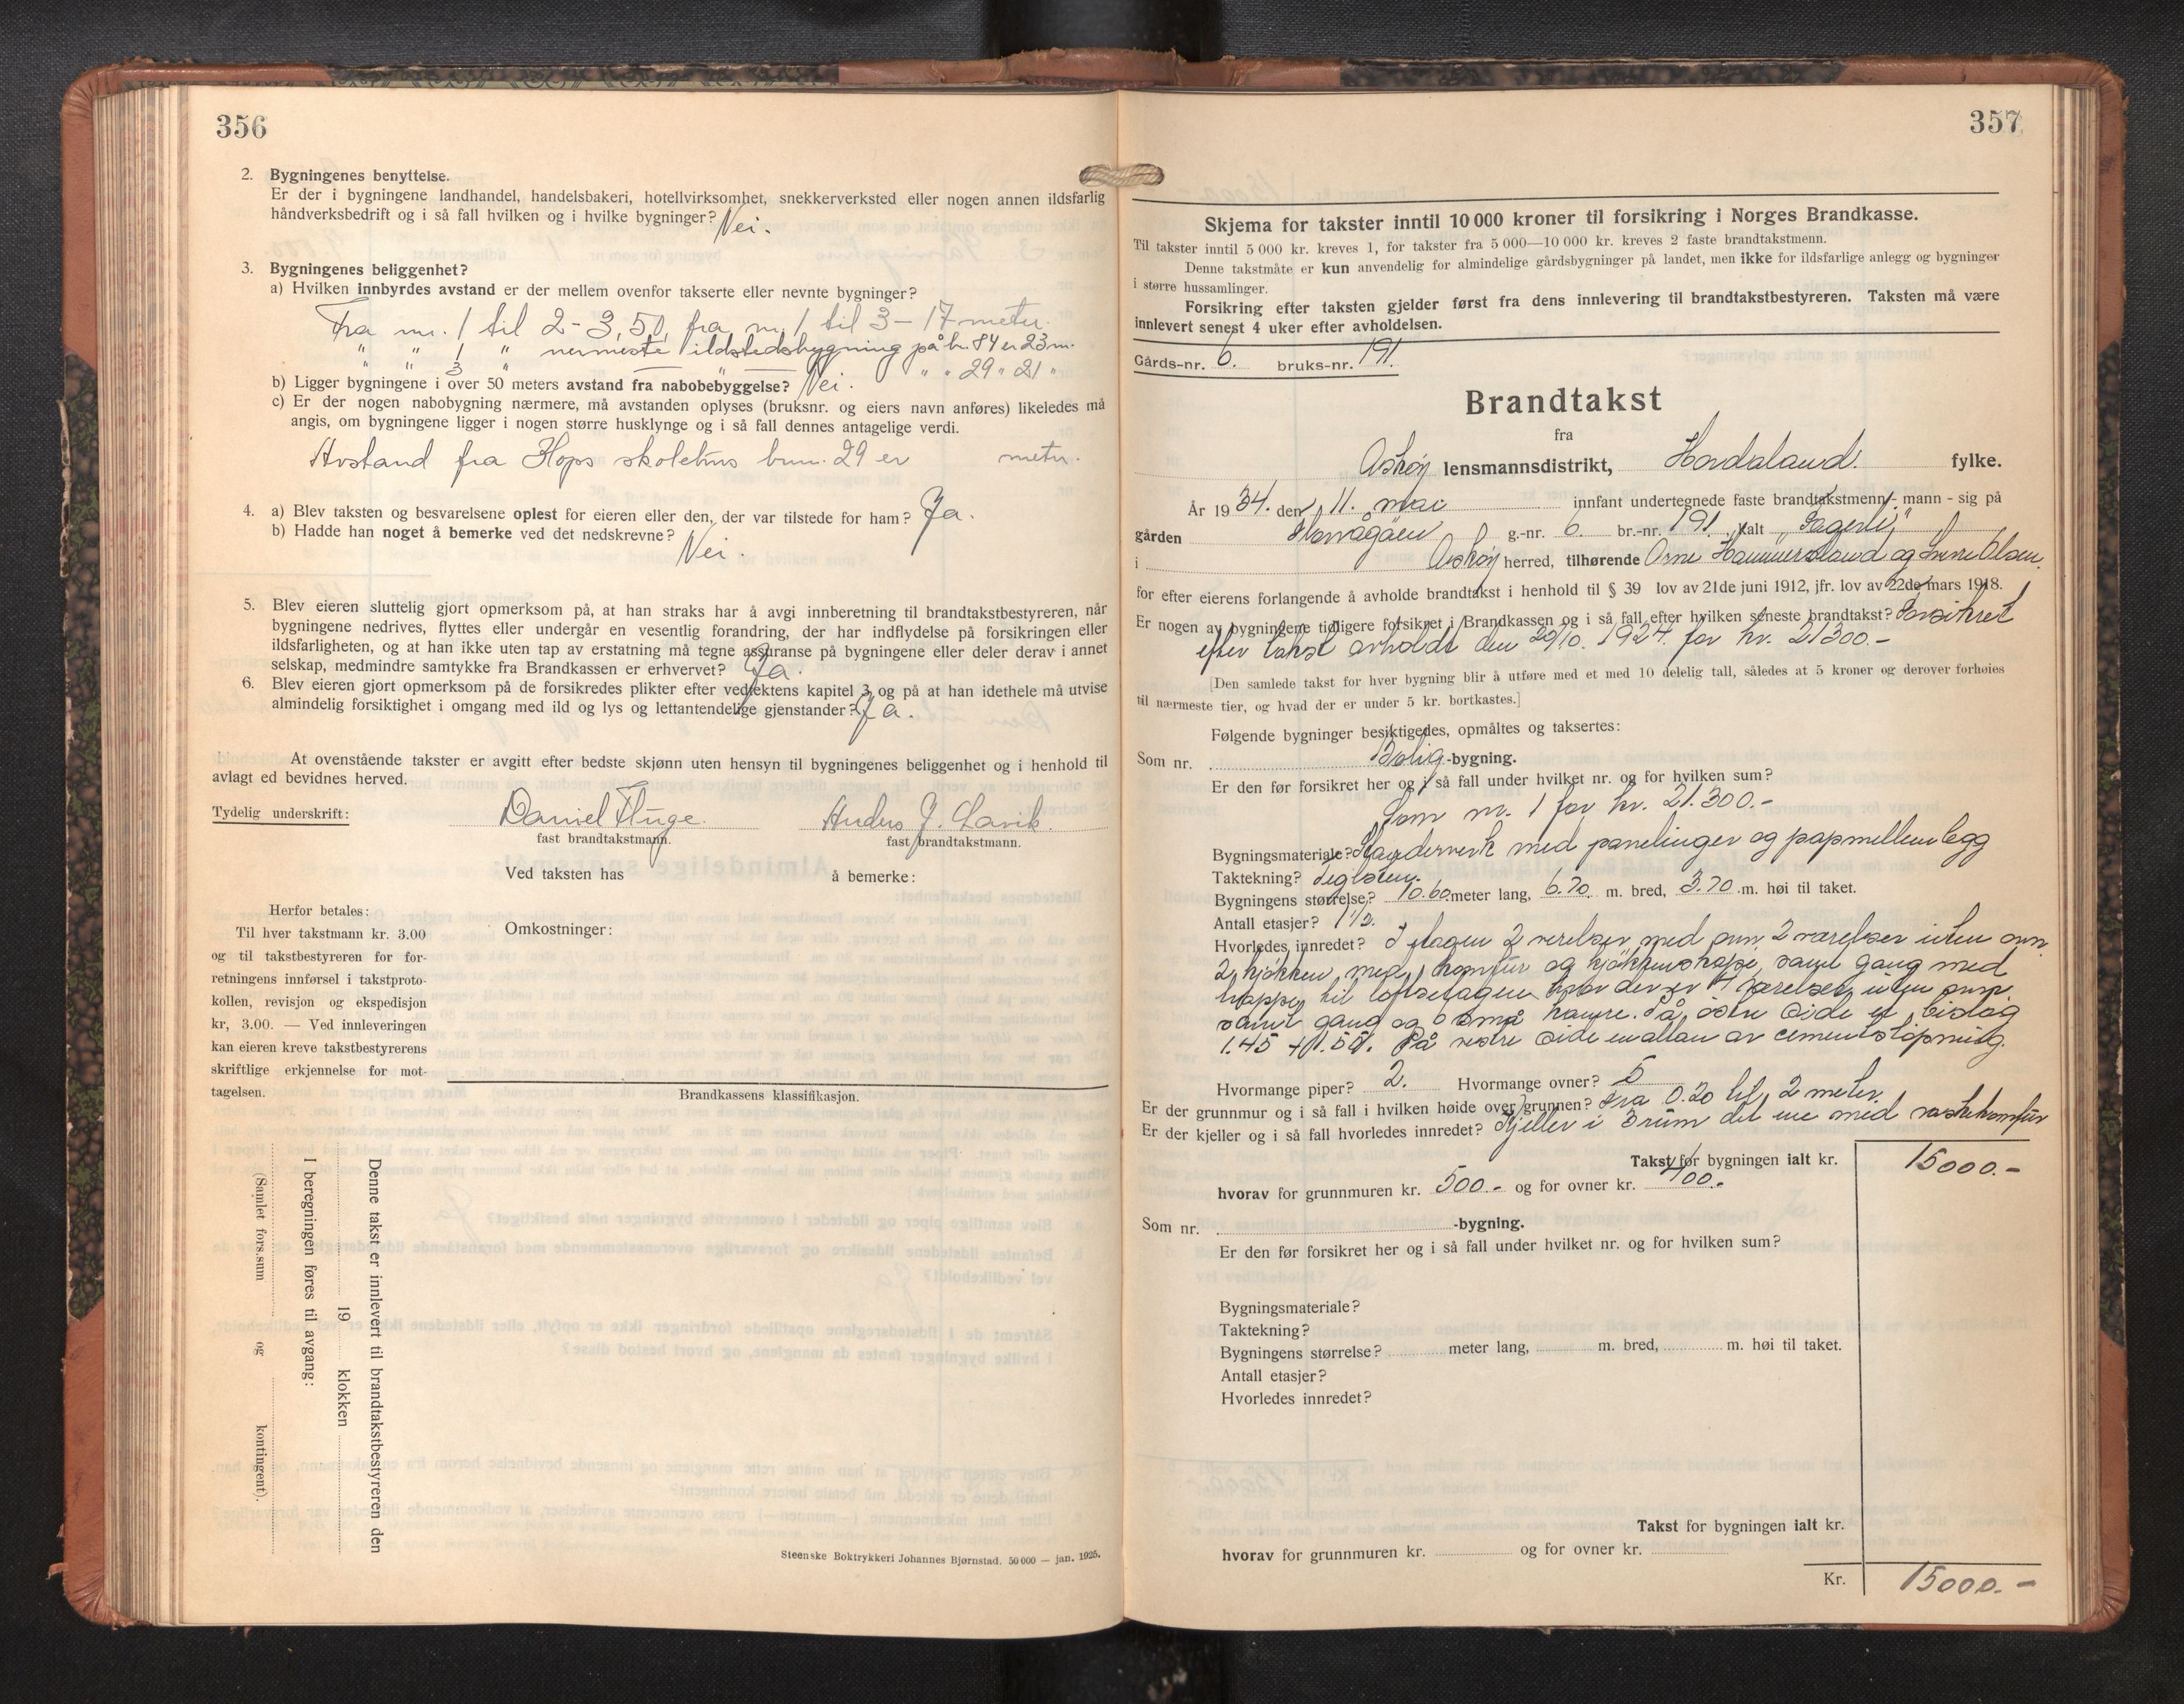 356
2. Bygningenes benyttelse.
Er der i bygningene landhandel, handelsbakeri, hotellvirksomhet, snekkerverksted eller nogen annen ildsfarlig
håndverksbedrift og i så fall hvilken og i hvilke bygninger? Nei.
3. Bygningenes beliggenhet?
a) Hvilken innbyrdes avstand er der mellem ovenfor takserte eller nevnte bygninger?
Fra nr. 1 til 2 - 3,50, fra nr. 1 til 3 - 17 meter.
" " 1 " nermeste ildstedsbygning på br. 84 er 23 m.
" " 3 " — " — " " 29 " 21 "
b) Ligger bygningene i over 50 meters avstand fra nabobebyggelse? Nei.
c) Er der nogen nabobygning nærmere, må avstanden oplyses (bruksnr. og eiers navn anføres) likeledes må
angis, om bygningene ligger i nogen større husklynge og i så fall dennes antagelige verdi.
Avstand fra Hops skolehus brnr. 29 er meter.
4. a) Blev taksten og besvarelsene oplest for eieren eller den, der var tilstede for ham? Ja.
b) Hadde han noget å bemerke ved det nedskrevne? Nei.
5. Blev eieren sluttelig gjort opmerksom på, at han straks har å avgi innberetning til brandtakstbestyreren, når
bygningene nedrives, flyttes eller undergår en vesentlig forandring, der har indflydelse på forsikringen eller
ildsfarligheten, og at han ikke uten tap av erstatning må tegne assuranse på bygningene eller deler derav i annet
selskap, medmindre samtykke fra Brandkassen er erhvervet? Ja.
6. Blev eieren gjort opmerksom på de forsikredes plikter efter vedtektens kapitel 3 og på at han idethele må utvise
almindelig forsiktighet i omgang med ild og lys og lettantendelige gjenstander? Ja.
At ovenstående takster er avgitt efter bedste skjønn uten hensyn til bygningenes beliggenhet og i henhold til
avlagt ed bevidnes herved.
Tydelig underskrift: Daniel Fluge. Anders J. Lavik.
fast brandtakstmann. fast brandtakstmann.
Ved taksten has å bemerke:
Omkostninger:
Herfor betales:
Til hver takstmann kr. 3.00
og til takstbestyreren for for-
retningens innførsel i takstproto-
kollen, revisjon og ekspedisjon
kr, 3.00. — Ved innleveringen
kan eieren kreve takstbestyrerens
skriftlige erkjennelse for mot-
tagelsen.
Brandkassens klassifikasjon.
Denne takst er innlevert til brandtakstbestyreren den
19 klokken
I beregningen føres til avgang:
(Samlet fors.sum og kontingent).
Steenske Boktrykkeri Johannes Bjørnstad. 50 000 — jan. 1925.
357
Skjema for takster inntil 10 000 kroner til forsikring i Norges Brandkasse.
Til takster inntil 5 000 kr. kreves 1, for takster fra 5 000—10 000 kr. kreves 2 faste brandtakstmenn.
Denne takstmåte er kun anvendelig for almindelige gårdsbygninger på landet, men ikke for ildsfarlige anlegg og bygninger
i større hussamlinger.
Forsikring efter taksten gjelder først fra dens innlevering til brandtakstbestyreren. Taksten må være
innlevert senest 4 uker efter avholdelsen.
Gårds-nr. 6. bruks-nr. 191.
Brandtakst
fra
Askøy lensmannsdistrikt, Hordaland. fylke.
År 1934. den 11. mai innfant undertegnede faste brandtakstmenn - mann - sig på
gården g.-nr. 6. br.-nr. 191. kalt "Fagerli"
i Askøy herred, tilhørende Arne Hammersland og Olsen
for efter eierens forlangende å avholde brandtakst i henhold til § 39 lov av 21de juni 1912, jfr. lov av 22de mars 1918.
Er nogen av bygningene tidligere forsikret i Brandkassen og i så fall efter hvilken seneste brandtakst? Forsikret
efter takst avholdt den 29/10. 1924. for kr. 21300.-
[Den samlede takst for hver bygning blir å utføre med et med 10 delelig tall, således at 5 kroner og derover forhøies
til nærmeste tier, og hvad der er under 5 kr. bortkastes.]
Følgende bygninger besiktigedes, opmåltes og taksertes:
Som nr. Bolig-bygning.
Er den før forsikret her og i så fall under hvilket nr. og for hvilken sum?
Som nr. 1 for kr. 21.300.-
Bygningsmateriale? Stagderverk med panelinger og papmellemlegg
Taktekning? Teglsten.
Bygningens størrelse? 10.60 meter lang, 6.70 m. bred, 3.70 m. høi til taket.
Antall etasjer? 1½.
Hvorledes innredet? I etagen 2 verelser med ovn. 2 værelser uten ovn
2 kjökken med komfur og kjökkenskape, samt gang med
trapper til loftsetagen, hvor der er 4 værelser uten ovn,
samt gang og små kamre. På östre side et bislag
1.45 + 1.50. På vestre side en altan av cementstöpning.
Hvormange piper? 2. Hvormange ovner? 5
Er der grunnmur og i så fall i hvilken høide over grunnen? Fra 0.20 til 2 meter.
Er der kjeller og i så fall hvorledes innredet? Kjeller i 3 rum det ene med vaskekomfur
Takst for bygningen ialt kr. 15000.-
hvorav for grunnmuren kr. 500.- og for ovner kr. 400.-
Som nr. -bygning.
Er den før forsikret her og i så fall under hvilket nr. og for hvilken sum?
Bygningsmateriale?
Taktekning?
Bygningens størrelse? meter lang, m. bred, m. høi til taket.
Antall etasjer?
Hvorledes innredet?
Takst for bygningen ialt kr.
hvorav for grunnmuren kr. og for ovner kr.
Kr. 15000.-